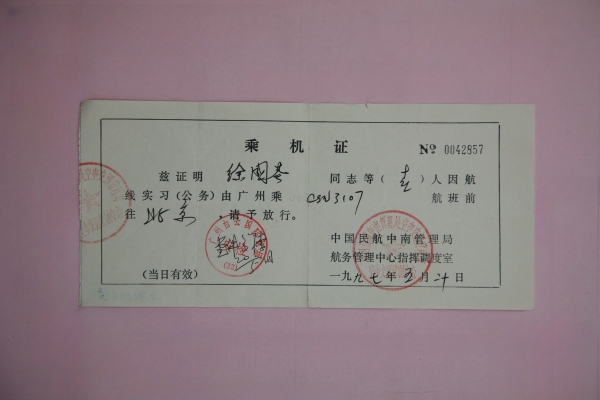 乘机证 № 0042857
兹证明 徐国基 同志等（壹）人因航
线实习（公务）由广州乘 CSN3107 航班前
往 北京 ，请予放行。
中国民航中南管理局
航务管理中心指挥调度室
（当日有效） 一九九七年五月二十日